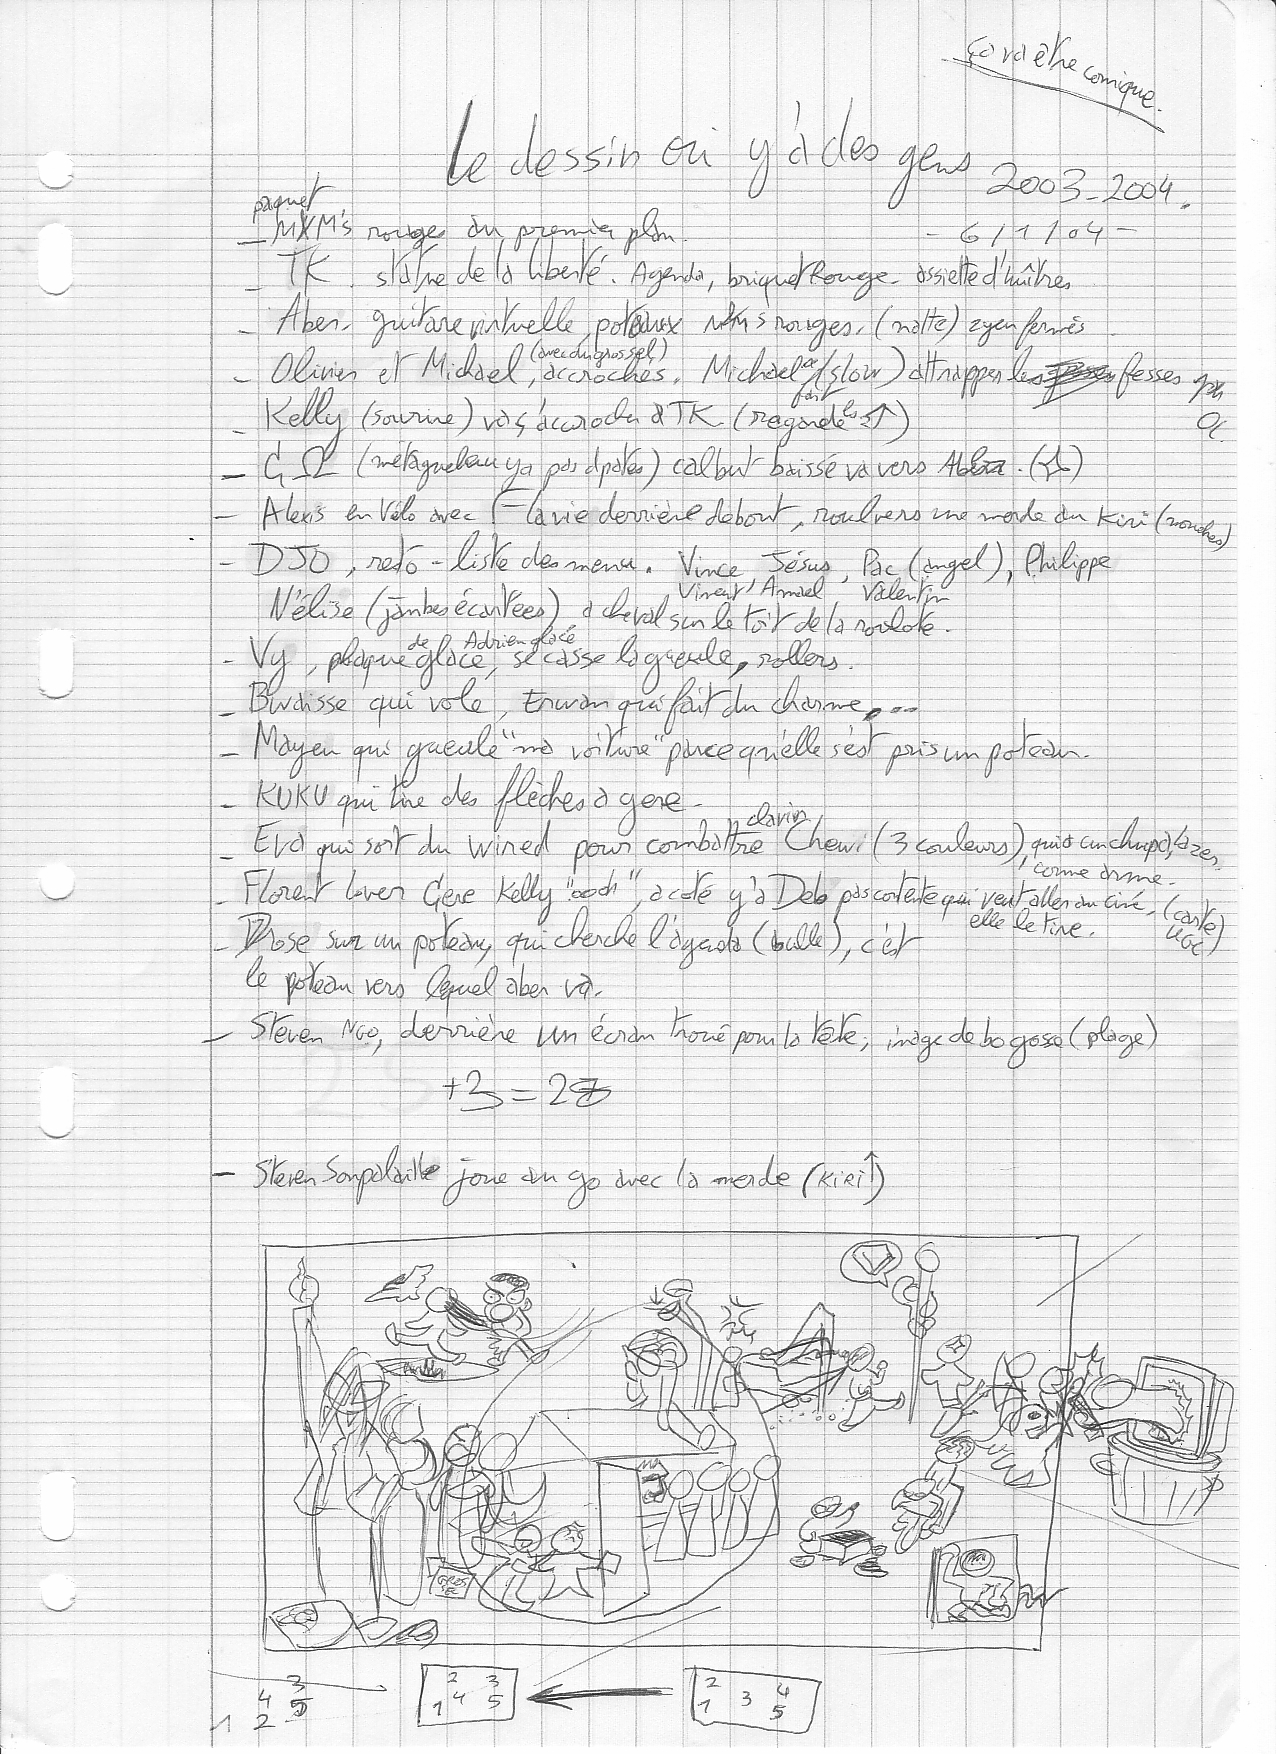 ça va être comique.
Le dessin où y'à des gens
2003-2004.
paquet
- M&M's rouges au premier plan.
- 6/1/04 -
- TK. statue de la liberté. Agenda, briquet Rouge. assiette d'huîtres
- Aber. guitare virtuelle, poteaux M&M's rouges. (natte) zyeu fermés
(avec du gros sel)
- Olivier et Michael, accrochés. Michael (slow) attrapper les fesses
- Kelly (sourire) va s'accrocher à TK. (regarde les ↑)
- GΩ (métaquekeu ya pas d'patés) calbut baissé va vers
- Alexis en vélo avec la vie derrière debout, roul vers une merde du Kiri (mouches)
- DJO, resto - liste des menu. Vince Jésus, Pac (angel), Philippe
Vincent Amael Valentin
N'élise (jambes écartées) à cheval sur le toit de la roulote.
de Adrien glacé
- Vy, plaque glace, se casse la gueule, rollers.
- Bwaisse qui vole, Erwan qui fait du charme, ...
- Mayeu qui gueule "ma voiture" parce qu'elle s'est pris un poteau.
- KUKU qui tire des flèches à gere.
clavier
- Eva qui sort du wired pour combattre Chewi (3 couleurs), qui a un chupa, lazer
comme arme.
- Florent lover Gere Kelly "oooh", a coté y'à Deb pas contente qui veut aller au ciné, (carte UGC)
elle le tire.
- Rose sur un poteau, qui cherche l'agenda (bulle), c'est
le poteau vers lequel aber va.
- Steven NGO, derrière un écran troué pour la tête, image de bo gosse (plage)
+3 = 28
- Steven Sompalaille joue au go avec la merde (KIRI ↑)
GROS SEL
4 3
1 2 5
2 3
1 4 5
2 4
1 3 5